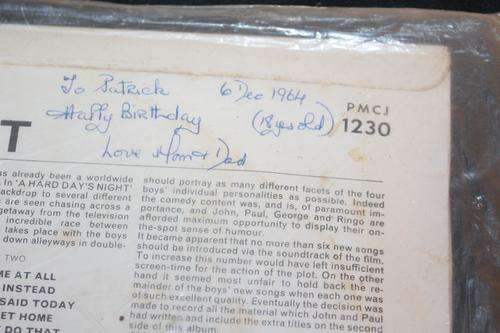 To Patrick 6 Dec 1964
Happy Birthday (18 yrs old)
Love Mom & Dad
PMCJ
1230
T
as already been a worldwide
In 'A HARD DAY'S NIGHT'
backdrop to several different
are seen chasing across a
getaway from the television
incredible race between
takes place with the boys
down alleyways in double-
TWO
ME AT ALL
INSTEAD
SAID TODAY
GET HOME
DO THAT
should portray as many different facets of the four
boys' individual personalities as possible. Indeed
the comedy content was, and is, of paramount im-
portance, and John, Paul, George and Ringo are
afforded maximum opportunity to display their on-
the-spot sense of humour.
It became apparent that no more than six new songs
should be introduced via the soundtrack of the film.
To increase this number would have left insufficient
screen-time for the action of the plot. On the other
hand it seemed most unfair to hold back the re-
mainder of the boys' new songs when each one was
of such excellent quality. Eventually the decision was
made to record all the material which John and Paul
had written and include the extra titles on the second
side of this album.